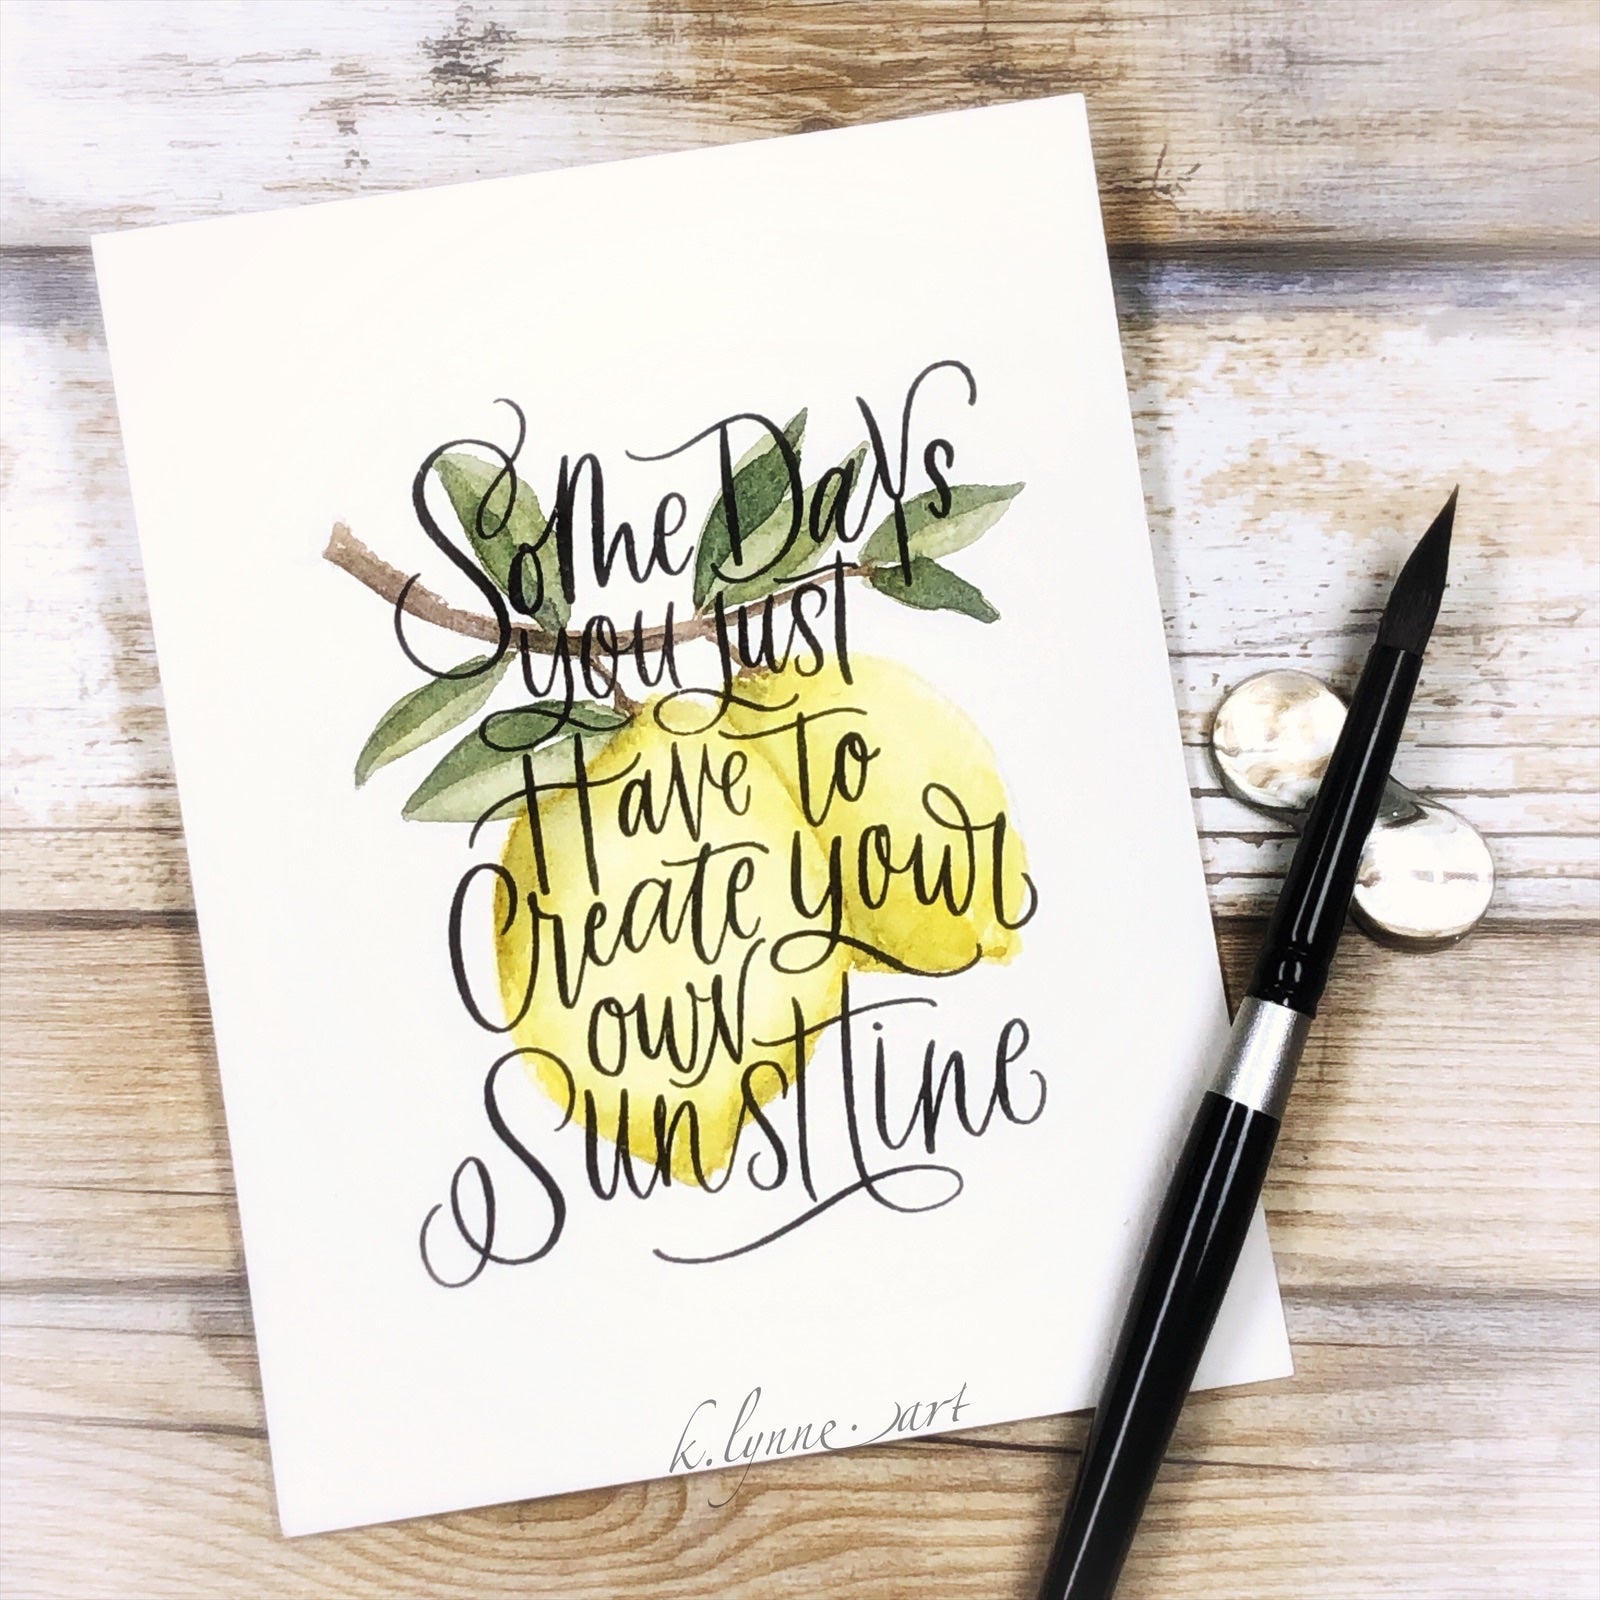 Some Days
you just
Have to
Create your
own
Sunshine
k.lynne.art